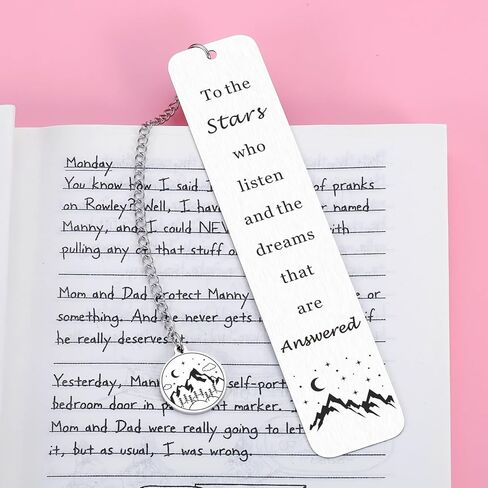 To the
Stars
who
listen
and the
dreams
that
are
Answered
Monday
You know how I said I of pranks
on Rowley? Well, I hav named
Manny, and I could NEV with
pulling any of that stuff o
Mom and Dad protect Manny e or
something. And he never gets if
he really deserves it.
Yesterday, Mann self-port
bedroom door in p marker.
Mom and Dad were really going to let
it, but as usual, I was wrong.